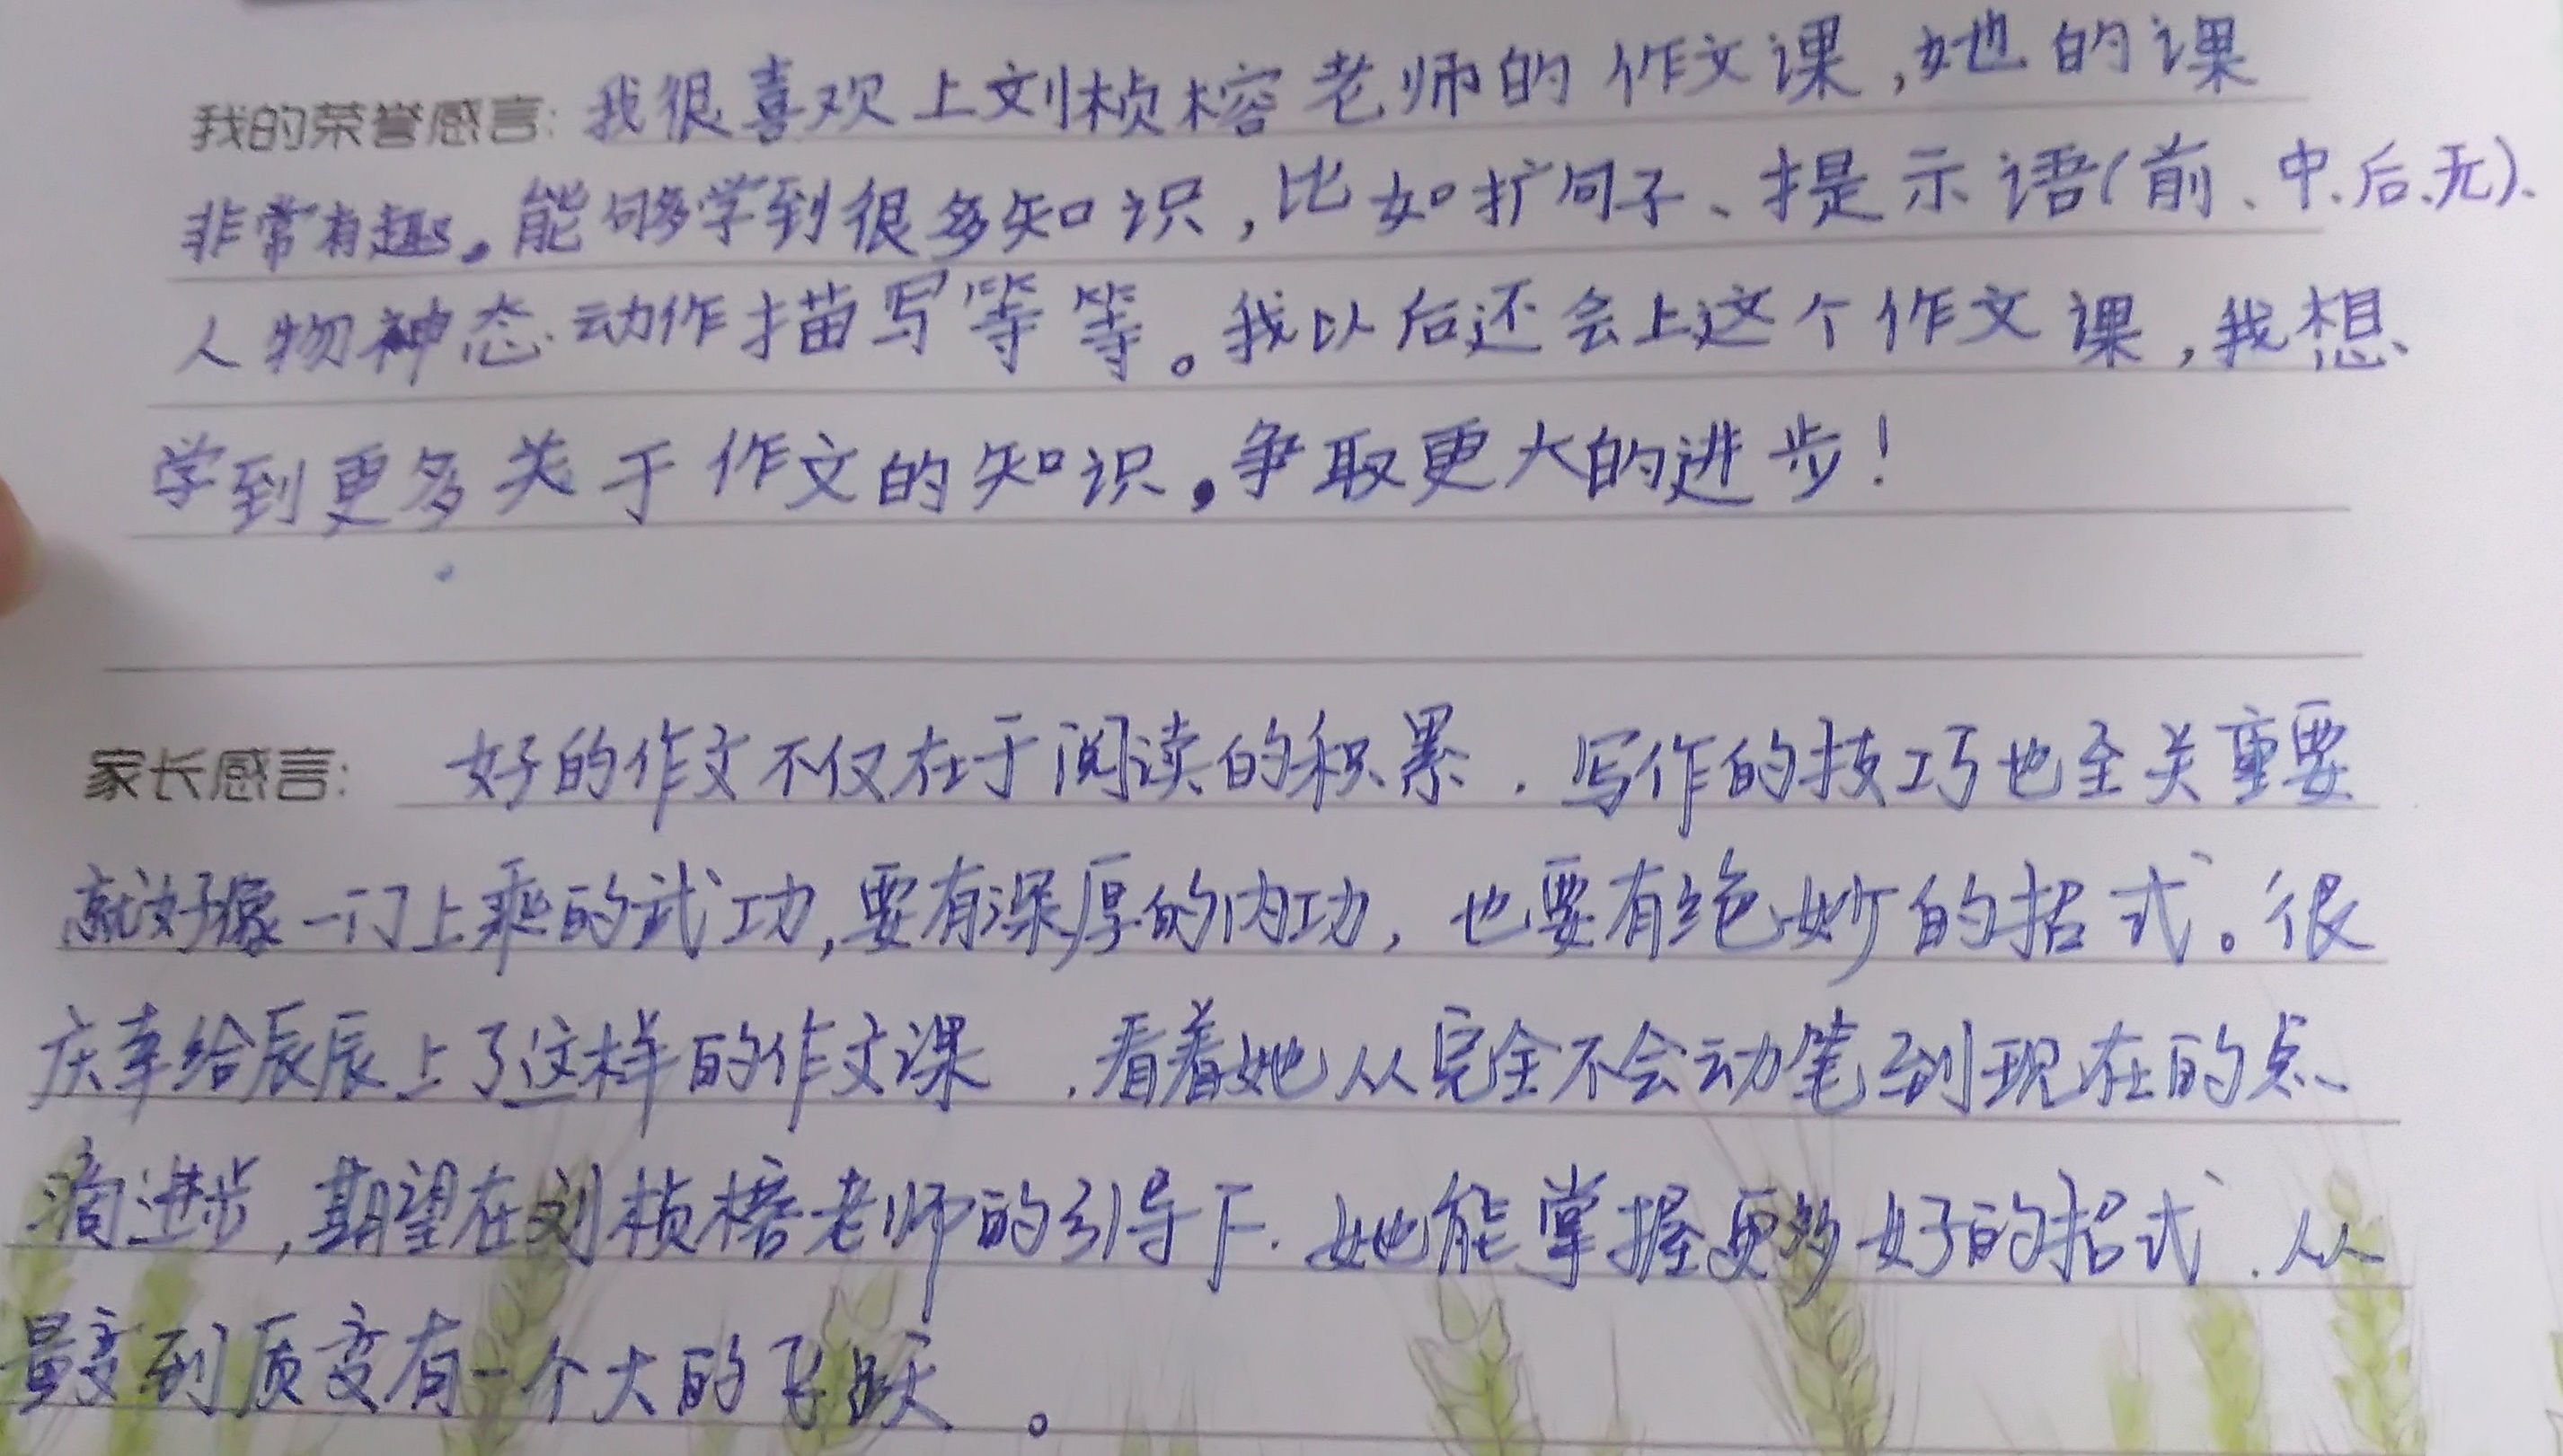 我的荣誉感言: 我很喜欢上刘桢榕老师的作文课,她的课
非常有趣。能够学到很多知识,比如扩句子、提示语(前、中、后、无)、
人物神态、动作描写等等。我以后还会上这个作文课,我想
学到更多关于作文的知识,争取更大的进步!
家长感言: 好的作文不仅在于阅读的积累,写作的技巧也至关重要
就好像一门上乘的武功,要有深厚的内功,也要有绝妙的招式。很
庆幸给辰辰上了这样的作文课,看着她从完全不会动笔到现在的点
滴进步,期望在刘桢榕老师的引导下,她能掌握更多好的招式,从
量变到质变有一个大的飞跃。